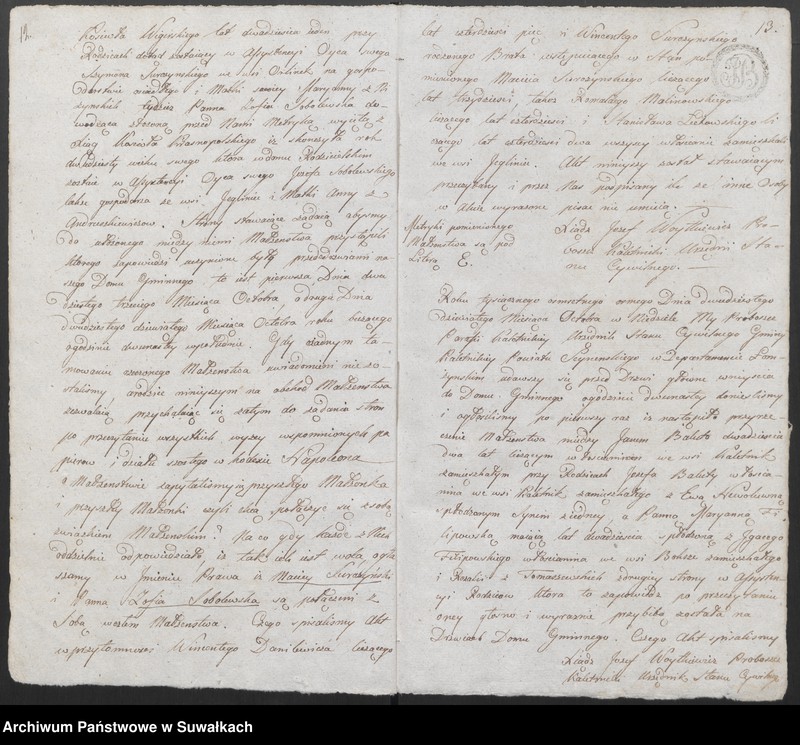 12.
Powiatu Wigierskiego lat dwadzieścia ieden przy
Rodzicach dotąd zostaiący w Assystencyi Oyca swego
Szymona Surażynskiego we wsi na gospo-
darstwie osiadłego i Matki swoiey Maryanny z
tudzież Panna Zofia Sobolewska do-
wodząca złożoną przed Nami Metryką wyiętą z
Xiąg Kościoła Krasnopolskiego iż skończyła rok
dwudziesty wieku swego która w domu Rodzicielskim
zostaie w Assystencyi Oyca swego Jozefa Sobolewskiego
także gospodarza ze wsi Jeglińce i Matki Anny z
Andruszkiewiczow. Strony stawaiące żądaią abyśmy
do ułożonego między niemi Małżeństwa przystąpili
ktorego zapowiedzi uczynione były przed drzwiami na-
szego Domu Gminnego to iest pierwsza Dnia dwu
dziestego trzeciego Miesiąca Octobra, a druga Dnia
dwudziestego dziewiątego Miesiąca Octobra roku bieżącego
o godzinie dwunastey w południe. Gdy żadnym ta-
mowaniu rzeczonego Małżeństwa uwiadomieni nie zo-
staliśmy, a rodzice ninieyszym na obchod Małżeństwa
zezwalaią, przychylaiąc się zatym do żądania stron
po przeczytaniu wszystkich wyżey wspomnionych pa
pierow i działu szostego w Kodexie Napoleona
o Małżeństwie zapytaliśmy się przyszłego Małżonka
i przyszłey Małżonki czyli chcą połączyć się z sobą
związkiem Małżenskim? Na co gdy każde z Nich
oddzielnie odpowiedziało, iż taka ich iest wola ogła
szamy w Jmieniu Prawa iż Maciey Surażynski
i Panna Zofia Sobolewska są połączeni z
Sobą węzłem Małżeństwa. Czego spisaliśmy Akt
w przytomności Wincentego Danilewicza liczącego
13.
lat czterdzieści pięć i Wincentego Surażynskiego
rodzonego Brata wstępuiącego w Stan po-
mienionego Macieia Surażynskiego liczącego
lat trzydzieści, także Romualda Malinowskiego
liczącego lat czterdzieści i Stanisława li
czącego lat czterdzieści dwa wszyscy włościanie zamieszkali
we wsi Jeglińce. Akt ninieyszy został stawaiącym
przeczytany i przez Nas podpisany ile że inne Osoby
w Akcie wyrażone pisać nie umieią.
Metryki pomienionego
Małżeństwa są pod
Literą E.
Xiądz Jozef Woytkiewicz Pro-
boszcz Kaletnicki Urzędnik Sta-
nu Cywilnego.
Roku tysiącznego osmsetnego osmego Dnia dwudziestego
dziewiątego Miesiąca Octobra w Niedziele. My Proboszcz
Parafii Kaletnickiey Urzędnik Stanu Cywilnego Gminy
Kaletnickiey Powiatu Seynenskiego w Departamencie Łom-
żynskim udawszy się przed Drzwi główne weyścia
do Domu Gminnego o godzinie dwunastey donieśliśmy
i ogłosiliśmy po pierwszy raz iż nastąpiło przyrze-
czenie Małżeństwa między Janem Balutą dwadzieścia
dwa lat liczącym włościaninem we wsi Kaletnik
zamieszkałym przy Rodzicach Jozefa Baluty włościa-
nina we wsi Kaletnik zamieszkałego z Ewą
spłodzonym Synem z iedney, a Panną Maryanną Fi-
lipowską maiącą lat dwadzieścia spłodzoną z Jgnacego
Filipowskiego włościanina we wsi zamieszkałego
i Rozalii z Tomaszewskich z drugiey strony w Assysten-
cyi Rodzicow ktora to zapowiedz po przeczytaniu
oney głosno i wyraznie przybitą została na
Drzwiach Domu Gminnego. Czego Akt spisaliśmy
Xiądz Jozef Woytkiewicz Proboszcz
Kaletnicki Urzędnik Stanu Cywilnego
Archiwum Państwowe w Suwałkach